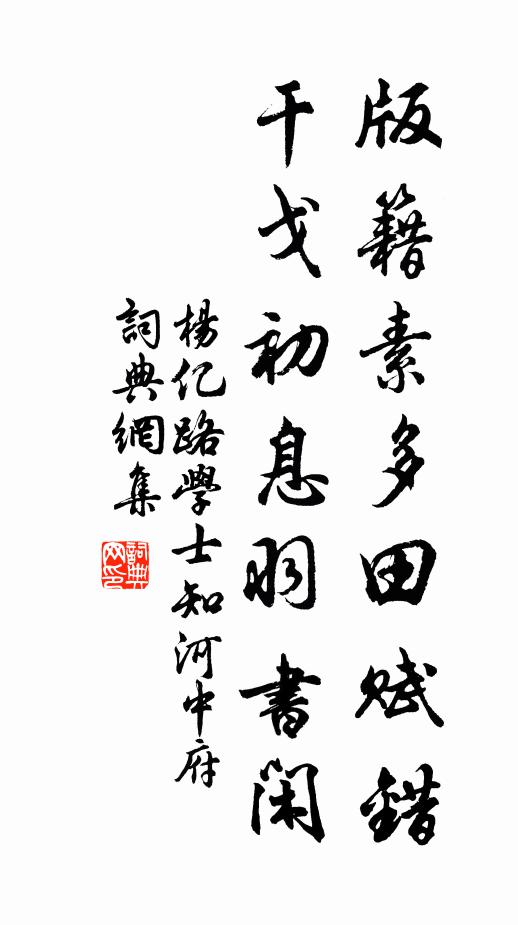 版籍素多田賦錯
干戈初息羽書閑
楊亿路學士知河中府
詞典網集
詞典网印